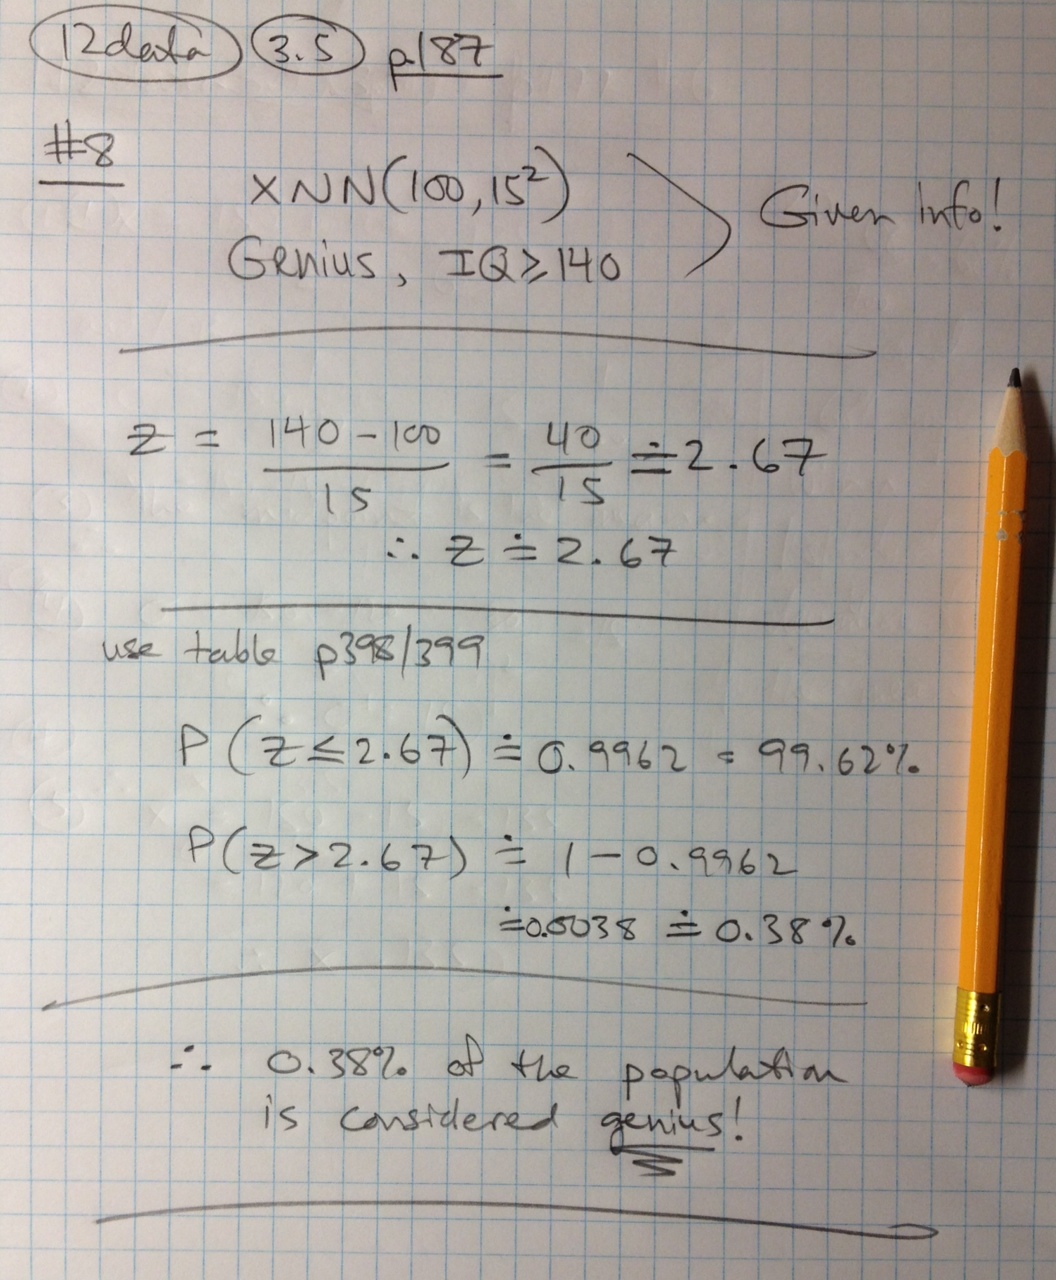 12data 3.5 p187
#8
X~N(100,15²)
Genius, IQ≥140
Given info!
z = 140-100/15 = 40/15 ≐ 2.67
∴ z ≐ 2.67
use table p398/399
P(z≤2.67) ≐ 0.9962 = 99.62%
P(z>2.67) ≐ 1-0.9962
≐0.0038 ≐ 0.38%
∴ 0.38% of the population
is considered genius!